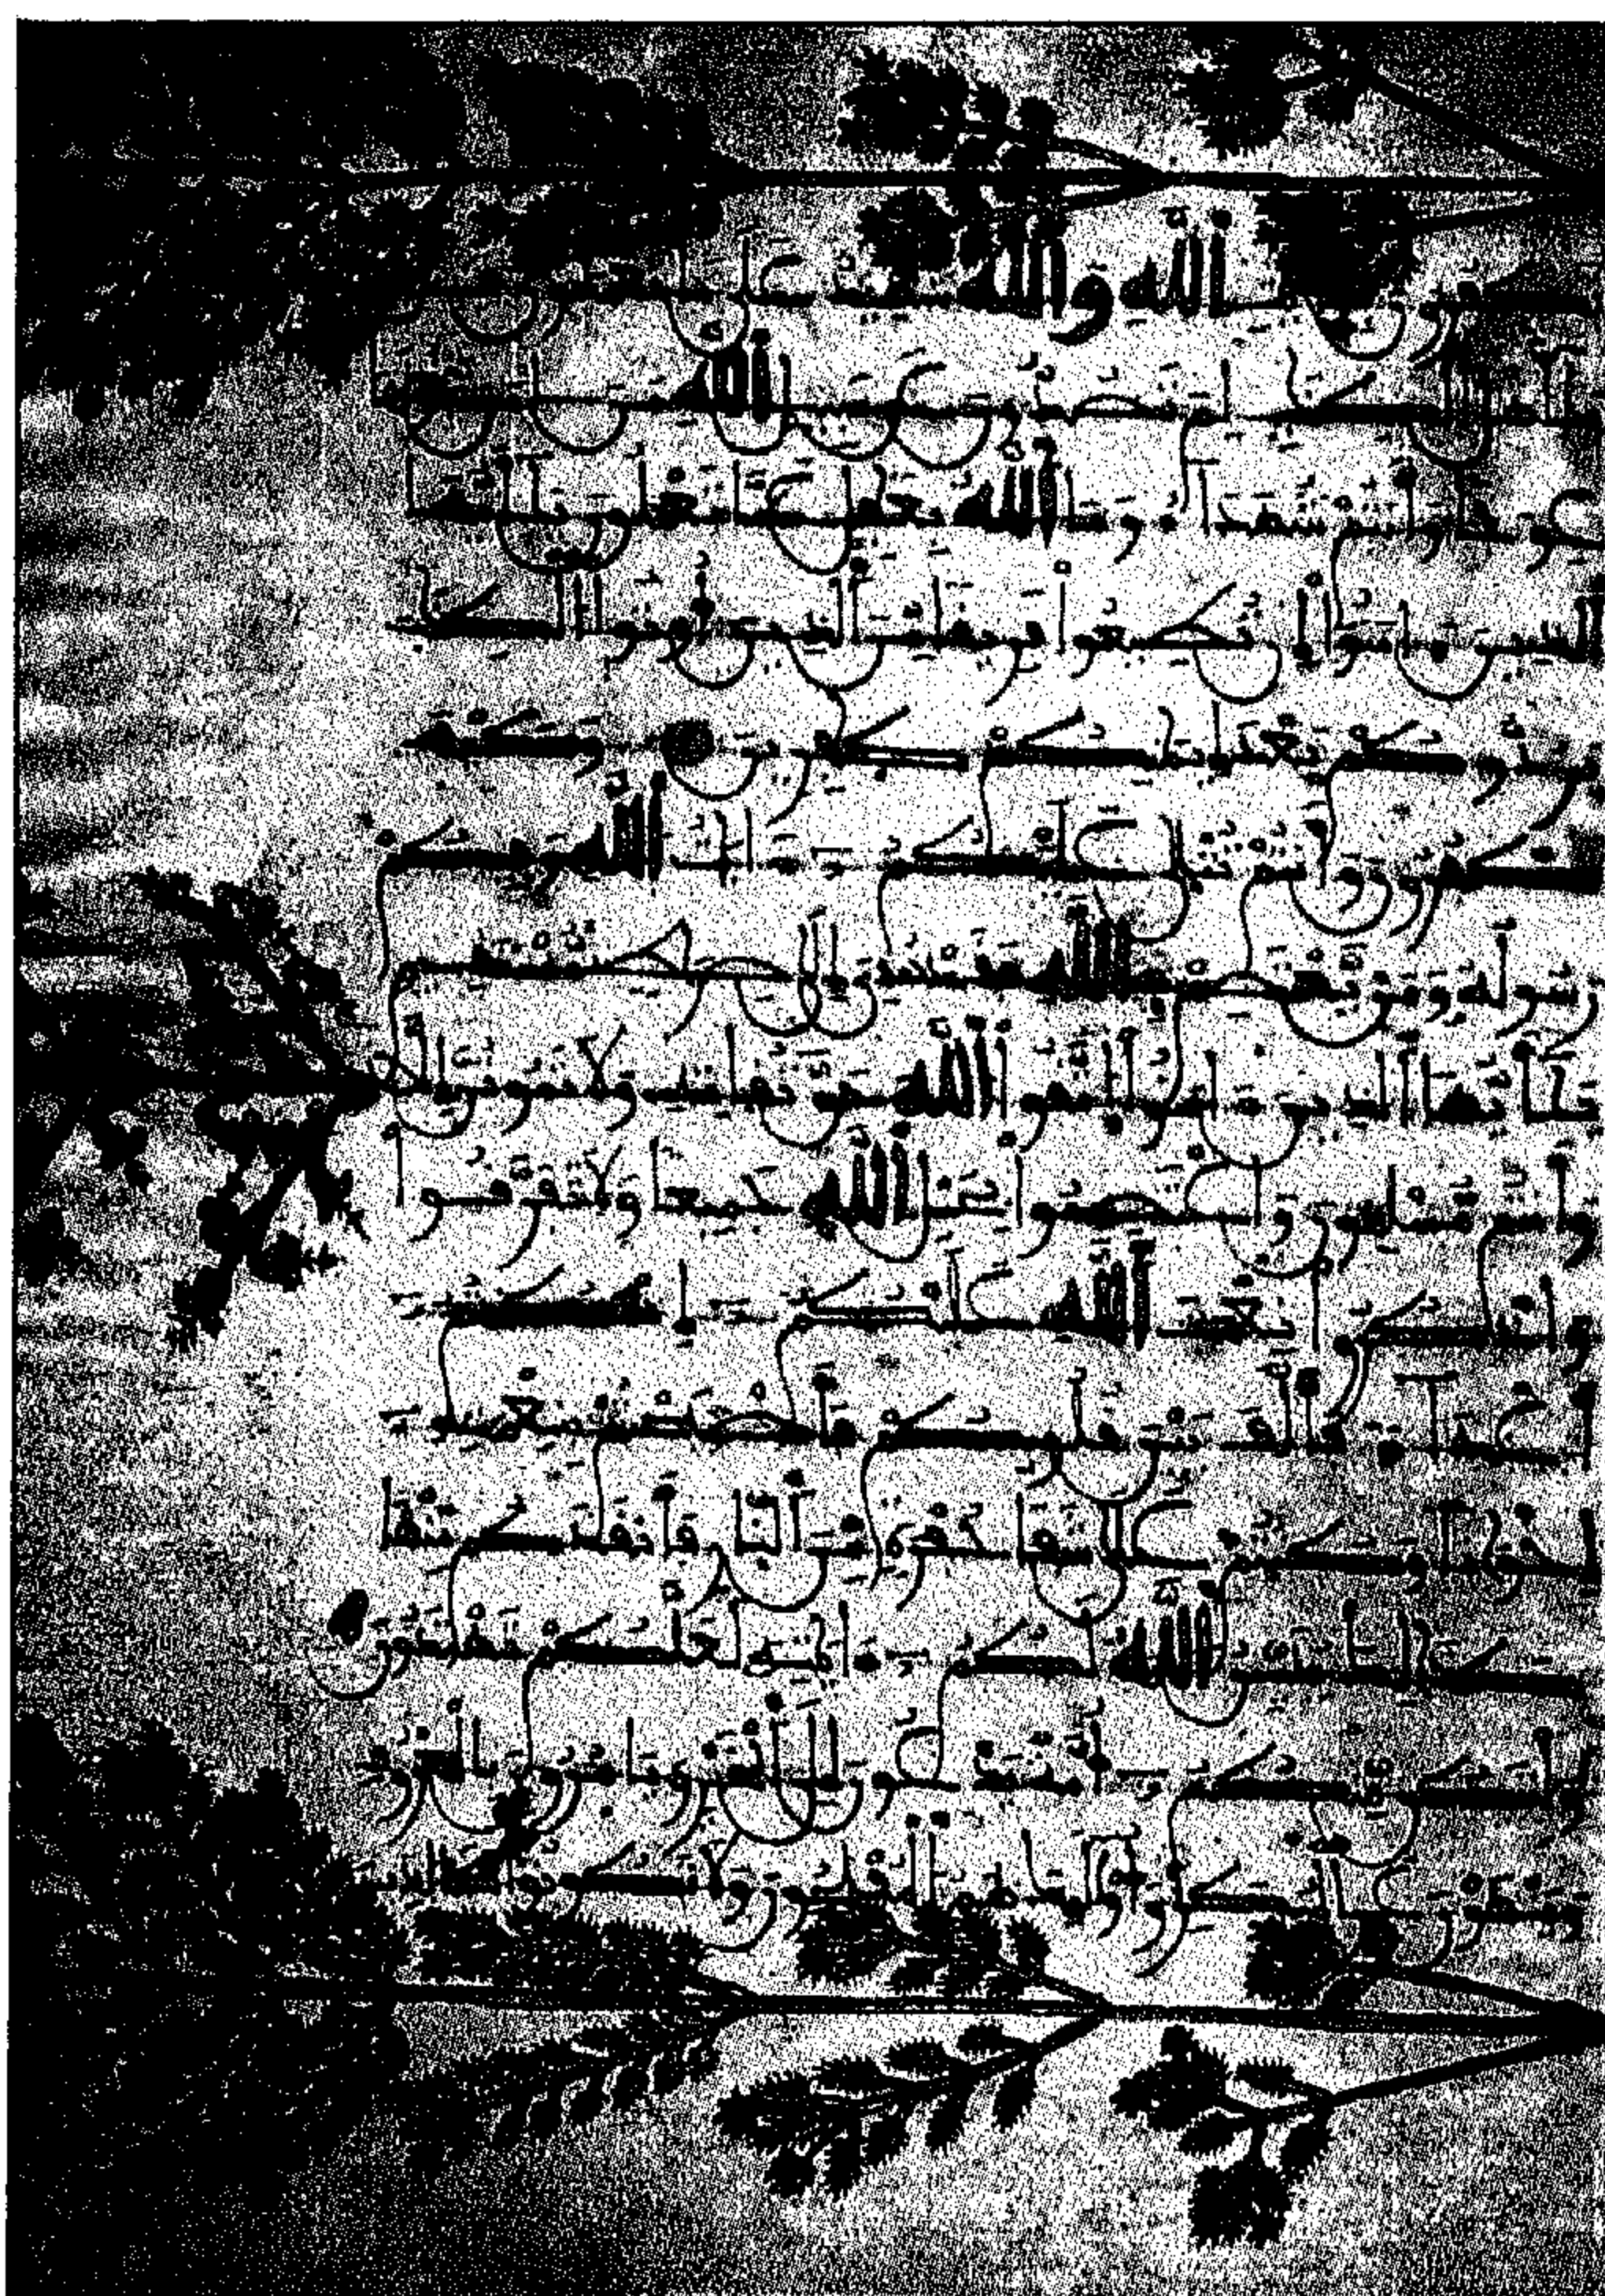 تكفرون بـٔايت الله والله شهيد على ما تعملون
الكتب لم تصدون عن سبيل الله من ءامن
عوجا وأنتم شهدآء وما الله بغفل عما تعملون يأيها
الذين ءامنوا إن تطيعوا فريقا من الذين أوتوا الكتب
يردوكم بعد إيمنكم كفرين وكيف
تكفرون وأنتم تتلى عليكم ءايت الله وفيكم
رسوله ومن يعتصم بالله فقد هدي إلى صرط مستقيم
يأيها الذين ءامنوا اتقوا الله حق تقاته ولا تموتن إلا
وأنتم مسلمون واعتصموا بحبل الله جميعا ولا تفرقوا
واذكروا نعمت الله عليكم إذ كنتم
أعدآء فألف بين قلوبكم فأصبحتم بنعمته
إخونا وكنتم على شفا حفرة من النار فأنقذكم منها
كذلك يبين الله لكم ءايته لعلكم تهتدون
ولتكن منكم أمة يدعون إلى الخير ويامرون بالمعروف
وينهون عن المنكر وأولئك هم المفلحون ولا تكونوا كالذين